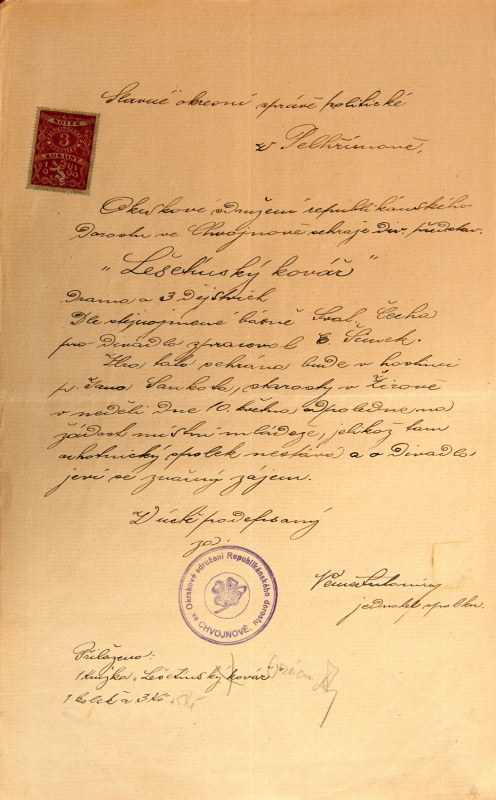 Slavné okresní správě politické
v Pelhřimově,
BOLEK
3
KORUNY
Okrskové sdružení republikánského
Dorostu ve Chvojnově sehraje div. představ.
"Lešetínský kovář"
drama o 3 Dějstvích
Dle stejnojmené básně Svat. Čecha
pro Divadlo zpracoval E Šimek.
Hra tato sehrána bude v hostinci
p. Jana Sankota, starosty v Žirově
v neděli Dne 10. května odpoledne na
žádost místní mládeže, jelikož tam
ochotnický spolek nestává a o Divadlo
jeví se značný zájem.
V úctě podepsaný
za:
Okrskové sdružení Republikánského dorostu
ve CHVOJNOVĚ.
jednatel spolku.
Přiloženo:
1 Knížka „Lešetínský kovář"
1 kolek à 3 Kč